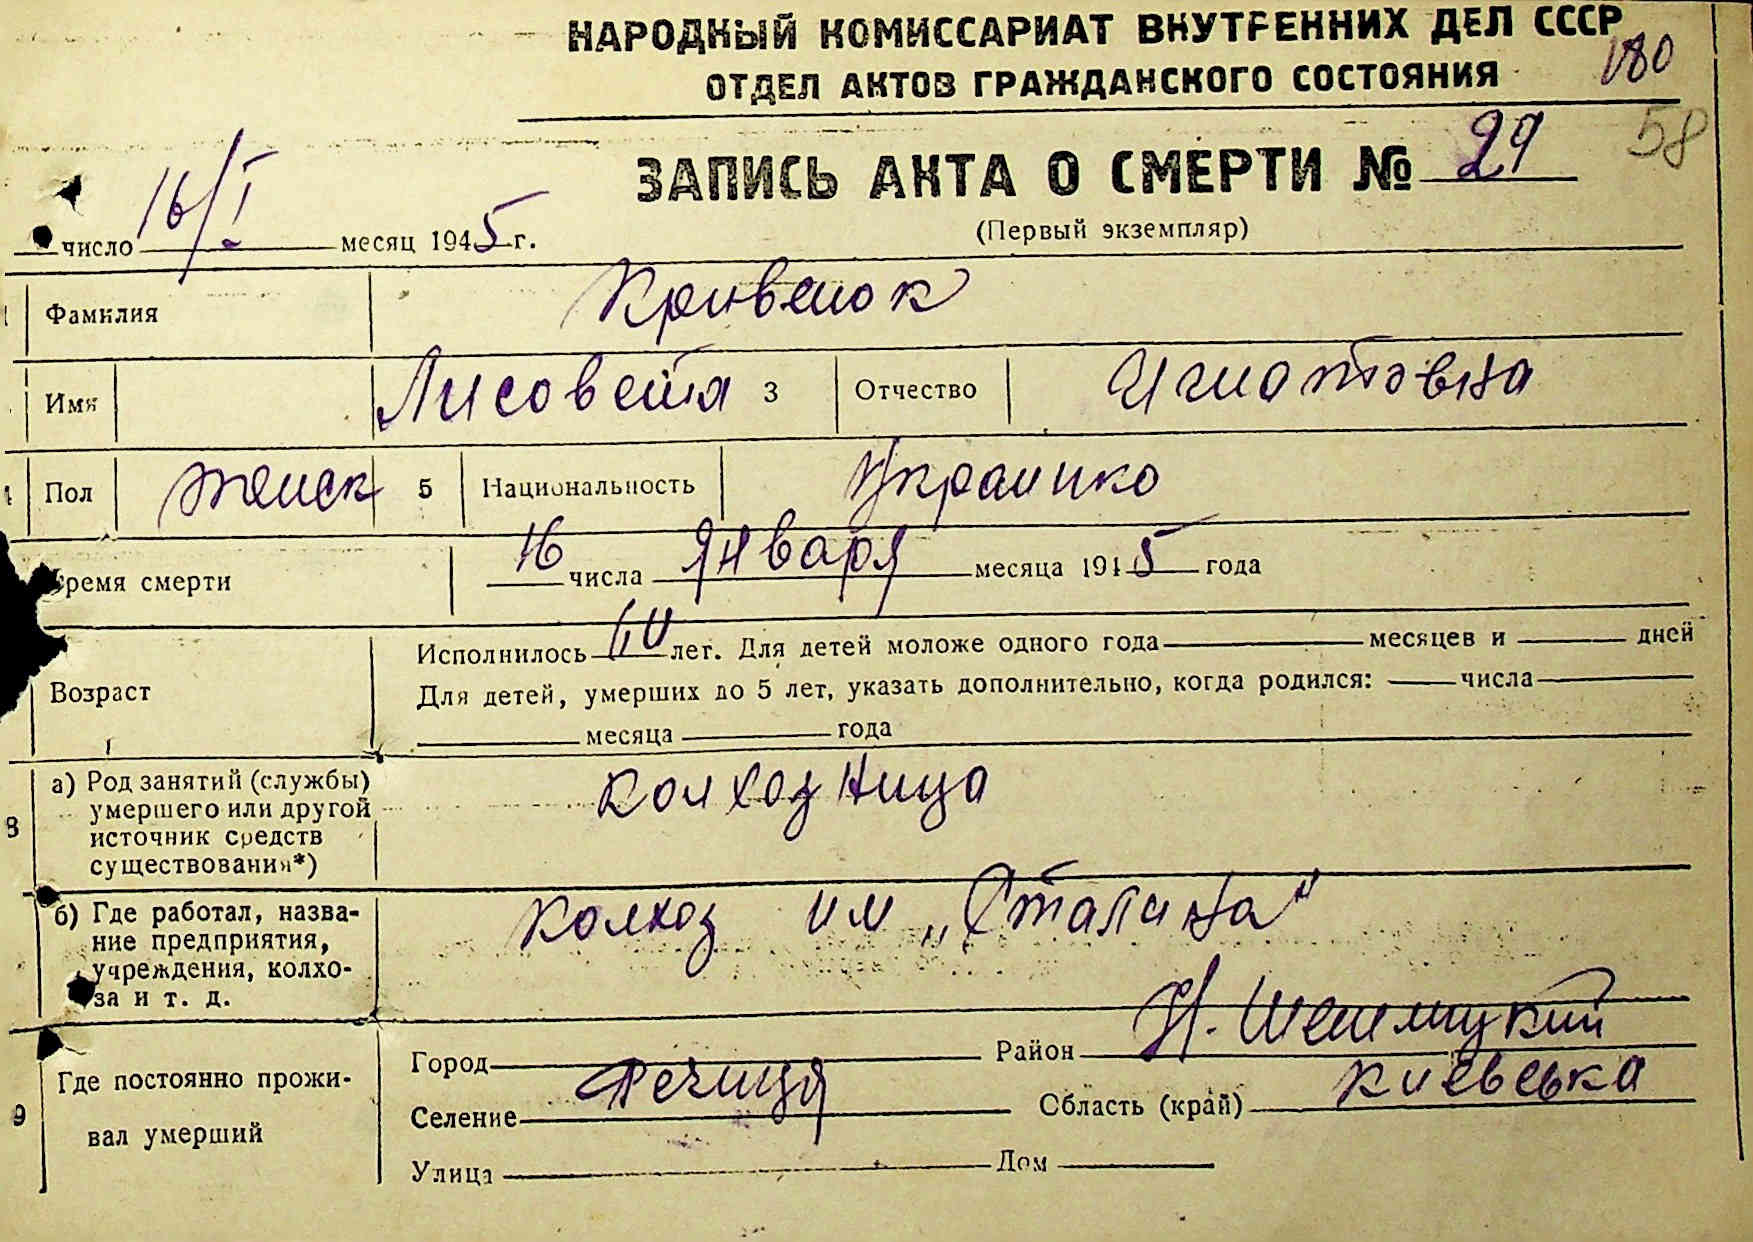 НАРОДНЫЙ КОМИССАРИАТ ВНУТРЕННИХ ДЕЛ СССР
180
ОТДЕЛ АКТОВ ГРАЖДАНСКОГО СОСТОЯНИЯ
58
ЗАПИСЬ АКТА О СМЕРТИ № 29
(Первый экземпляр)
число 16/I месяц 1945 г.
Фамилия Кривенок
Имя Лисовета 3 Отчество Игнатовна
4 Пол женск 5 Национальность Украинка
Время смерти 16 числа января месяца 1945 года
Возраст
Исполнилось лет. Для детей моложе одного года месяцев и дней
Для детей, умерших до 5 лет, указать дополнительно, когда родился: числа
месяца года
8 а) Род занятий (службы) умершего или другой источник средств существования*) колхозница
б) Где работал, название предприятия, учреждения, колхоза и т. д. колхоз им „Сталина"
9 Где постоянно проживал умерший
Город Район
Селение Речиця Область (край) киевська
Улица Дом